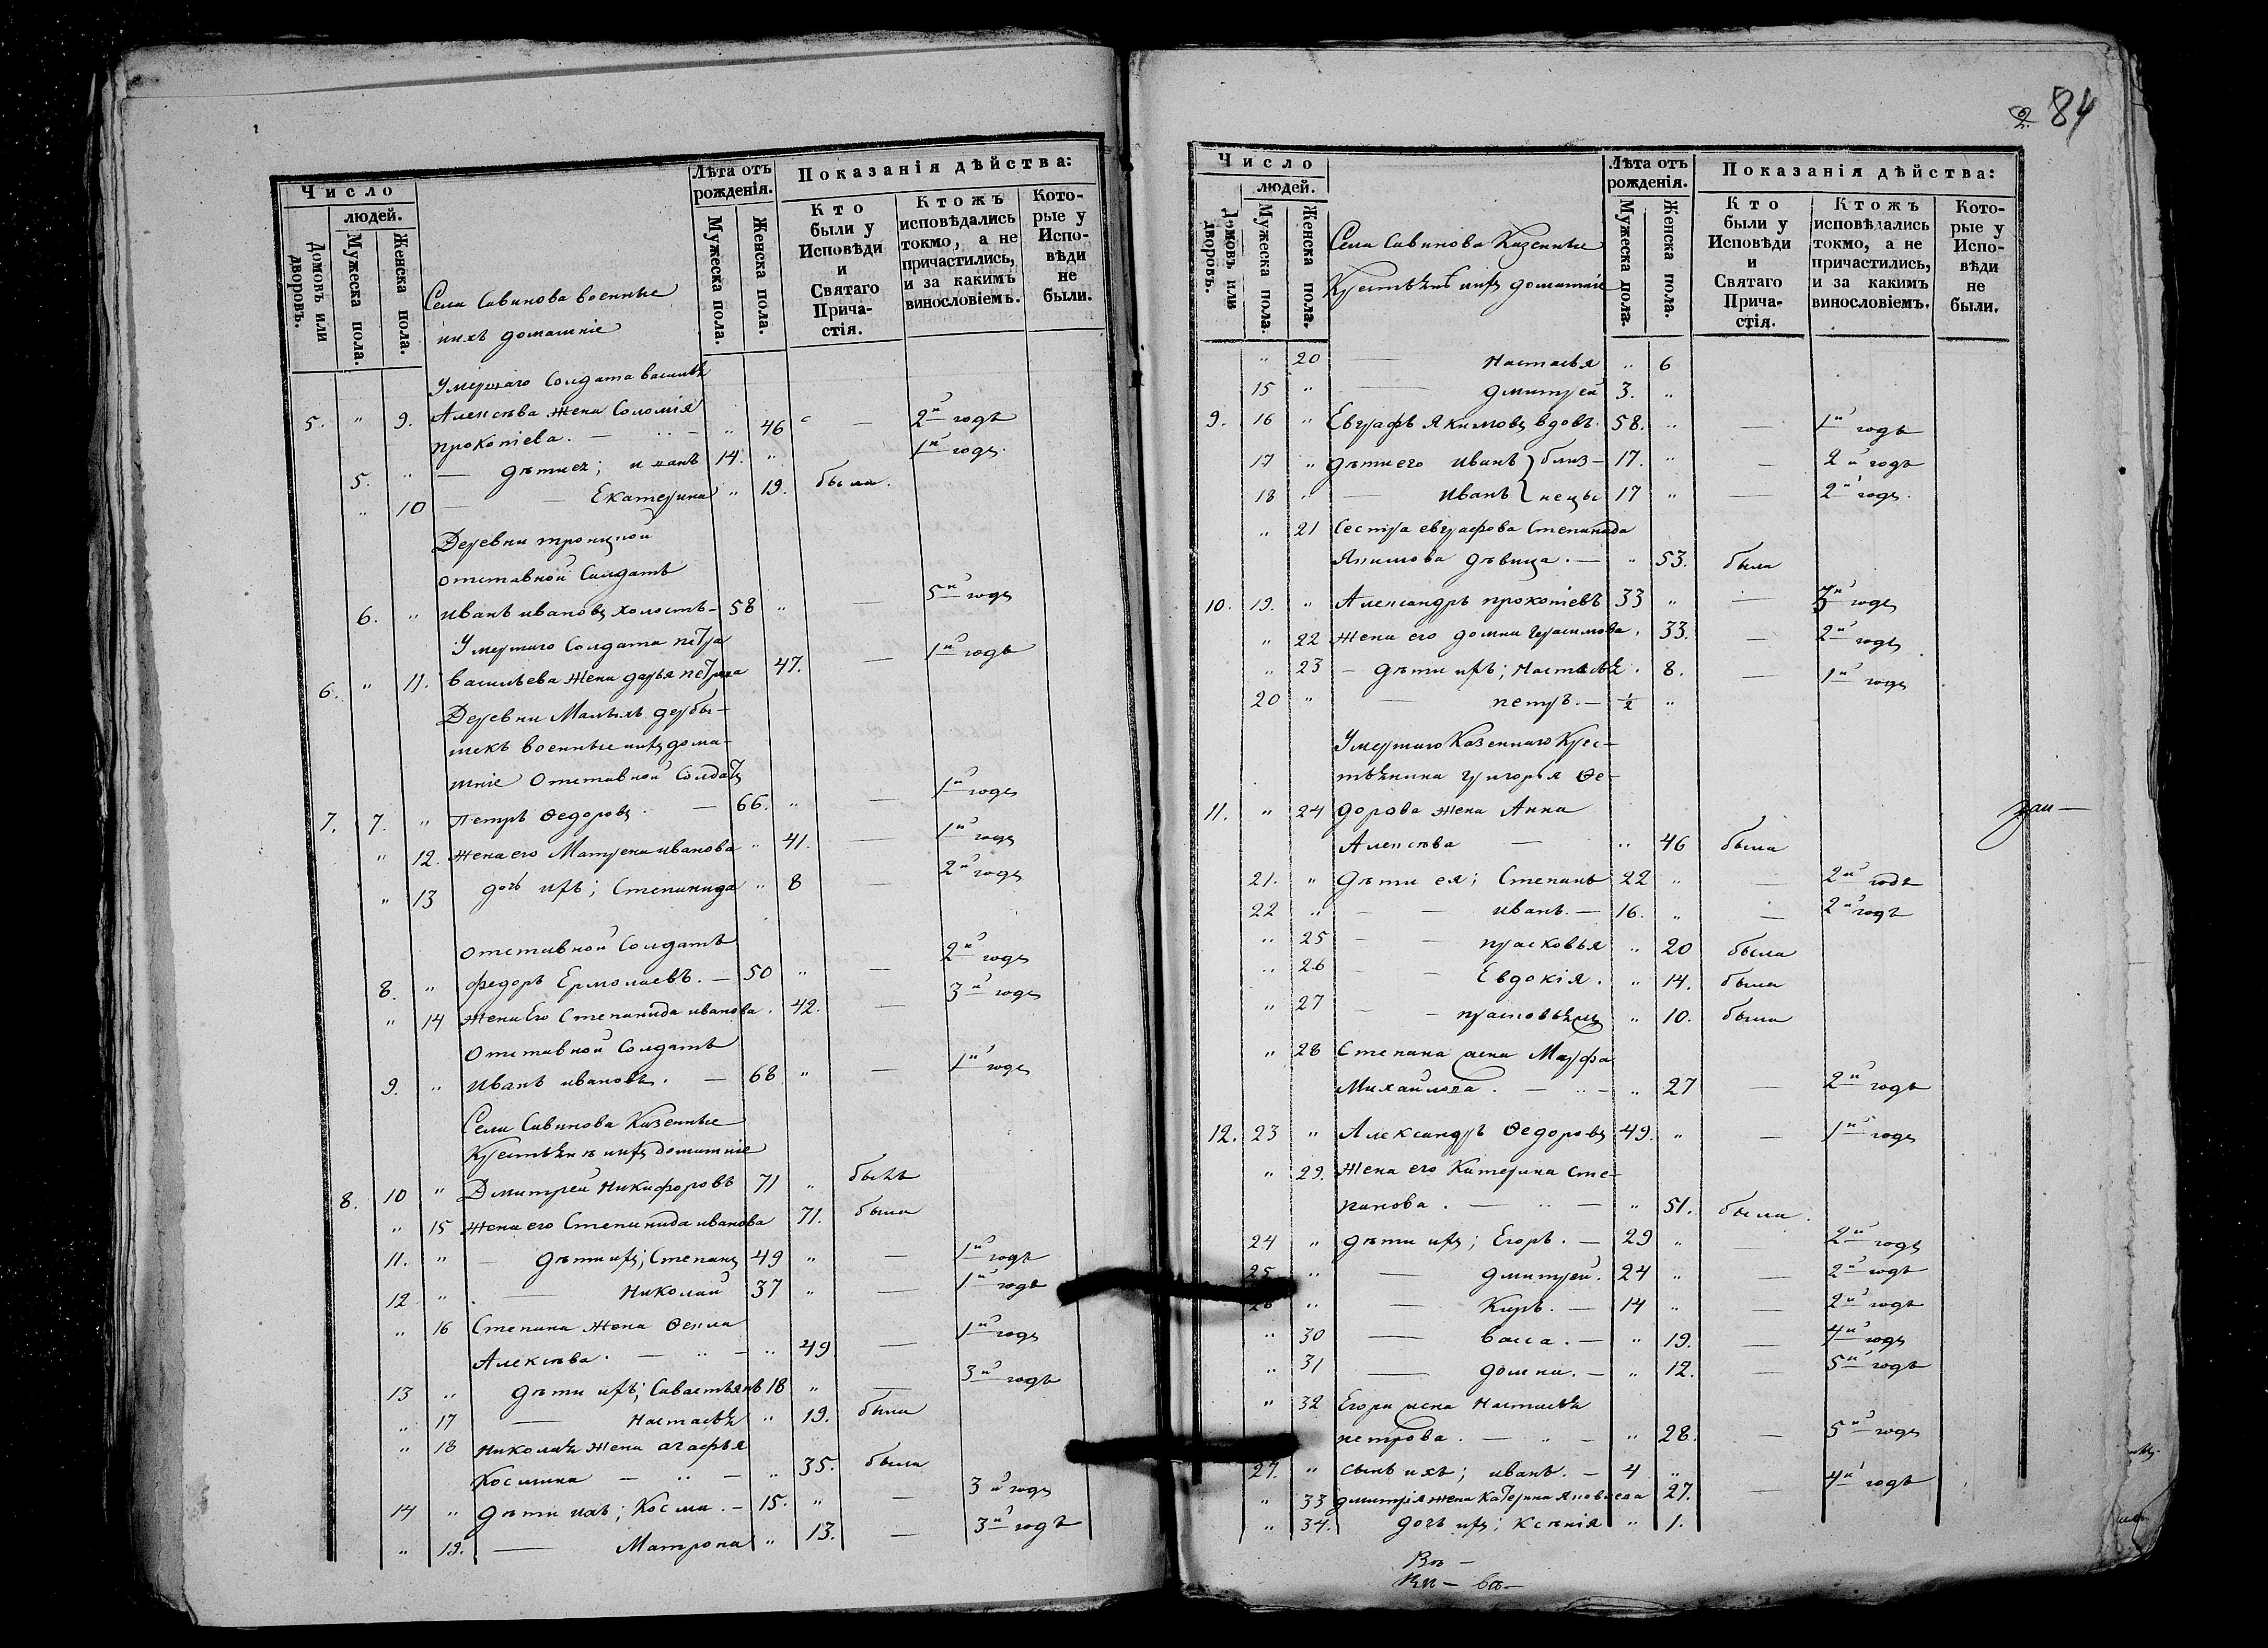 Число
людей.
Домовъ или дворовъ.
Мужеска пола.
Женска пола.
Села Савинова военные
ихъ домашніе
Лѣта отъ рожденія.
Мужеска пола.
Женска пола.
Показанія дѣйства:
Кто были у Исповѣди и Святаго Прича-стія.
Ктожъ исповѣдались токмо, а не причастились, и за какимъ винословіемъ.
Кото-рые у Испо-вѣди не были.
Умершаго Солдата василья
5. " 9. Алексѣва жена Соломія
прокопіева. — " 46 — 2й годъ
5. " — дѣти ея; иванъ 14. " 1й годъ.
" 10 — Екатерина " 19. была.
Деревни троицкой
отставной Солдатъ
6. " иванъ ивановъ холостъ — 58 " — 5й годъ
Умершаго Солдата петра
6. " 11. васильева жена дарья петрова 47. — 1й годъ
Деревни Малыхъ дербы-
шекъ военные ихъ дома-
шніе Отставной Солдатъ
7. 7. " петръ Ѳедоровъ — 66. " — 1й годъ
" 12. жена его Матрена иванова " 41. — 1й годъ
" 13 дочь ихъ; Степанида " 8 — 2й годъ
отставной Солдатъ
8. " федоръ Ермолаевъ. — 50 " — 2й годъ
" 14 жена Его Степанида иванова. 42. — 3й годъ
Отставной Солдатъ
9. " иванъ ивановъ. — 68 " — 1й годъ
Села Савинова Казенные
Крестьяне ихъ домашніе
8. 10 " Дмитрей Никифоровъ 71 " былъ
" 15 жена его Степанида иванова 71. была
11. " — дѣти ихъ; Степанъ 49 " — 1й годъ
12 " — Николай 37 " — 1й годъ
" 16 Степана жена Ѳекла
Алексѣва. — " — " 49 — 1й годъ
13 " дѣти ихъ; Савастьянъ 18 " — 3й годъ
" 17 — Настасья " 19. была
" 18 николая жена агафья
Космина — " — " 35. была
14 " дѣти ихъ; Косма. — 15. " — 3й годъ
" 19. — Матрона " 13. — 3й годъ
2. 84
Число
людей.
Домовъ или дворовъ.
Мужеска пола.
Женска пола.
Села Савинова Казенные
Крестьянѣ ихъ домашніе
Лѣта отъ рожденія.
Мужеска пола.
Женска пола.
Показанія дѣйства:
Кто были у Исповѣди и Святаго Прича-стія.
Ктожъ исповѣдались токмо, а не причастились, и за какимъ винословіемъ.
Кото-рые у Испо-вѣди не были.
" 20 — Настасья " 6
15 " — дмитрей 3. "
9. 16 " Евграфъ Якимовъ вдовъ. 58. " — 1й годъ
17 " дѣти его иванъ } близ- 17. " — 2й годъ
18 " — иванъ } нецы 17 " — 2й годъ.
" 21 Сестра евграфова Степанида
Якимова дѣвица. — " 53. была
10. 19. " Александръ прокопіевъ 33 " — 3й годъ
" 22 жена его домна герасимова. 33. — 2й годъ
" 23 — дѣти ихъ; Настасья. 8. — 1й годъ
20 " — петръ. — 1/2 "
Умершаго Казеннаго Крес-
тьянина григорья Ѳе-
11. " 24 дорова жена Анна
Алексѣва — " 46 была
21. " дѣти ея; Степанъ 22 " — 2й годъ
22 " — — иванъ. — 16. " — 2й годъ
" 25 — — прасковья " 20 была
" 26 — — Евдокія. " 14. была
" 27 — — прасковья " 10. была
" 28 Степана жена Марфа
Михайлова. — " — " 27 — 2й годъ
12. 23 " Александръ Ѳедоровъ 49. " — 1й годъ
" 29. Жена его Катерина Сте-
панова. — " — " 51. была.
24 " дѣти ихъ; Егоръ. — 29 " — 2й годъ
25 " — дмитрей. 24 " — 2й годъ
26 " — Киръ. — 14 " — 2й годъ
" 30 — васса. — " 19. — 4й годъ
" 31 — домна. — " 12. — 5й годъ
" 32 Егора жена Настасья
петрова. — " — " 28. — 5й годъ
27. " сынъ ихъ; иванъ. — 4 "
" 33 дмитрія жена Катерина яковлева 27. — 4й годъ
" 34. дочь ихъ; Ксенія " 1.